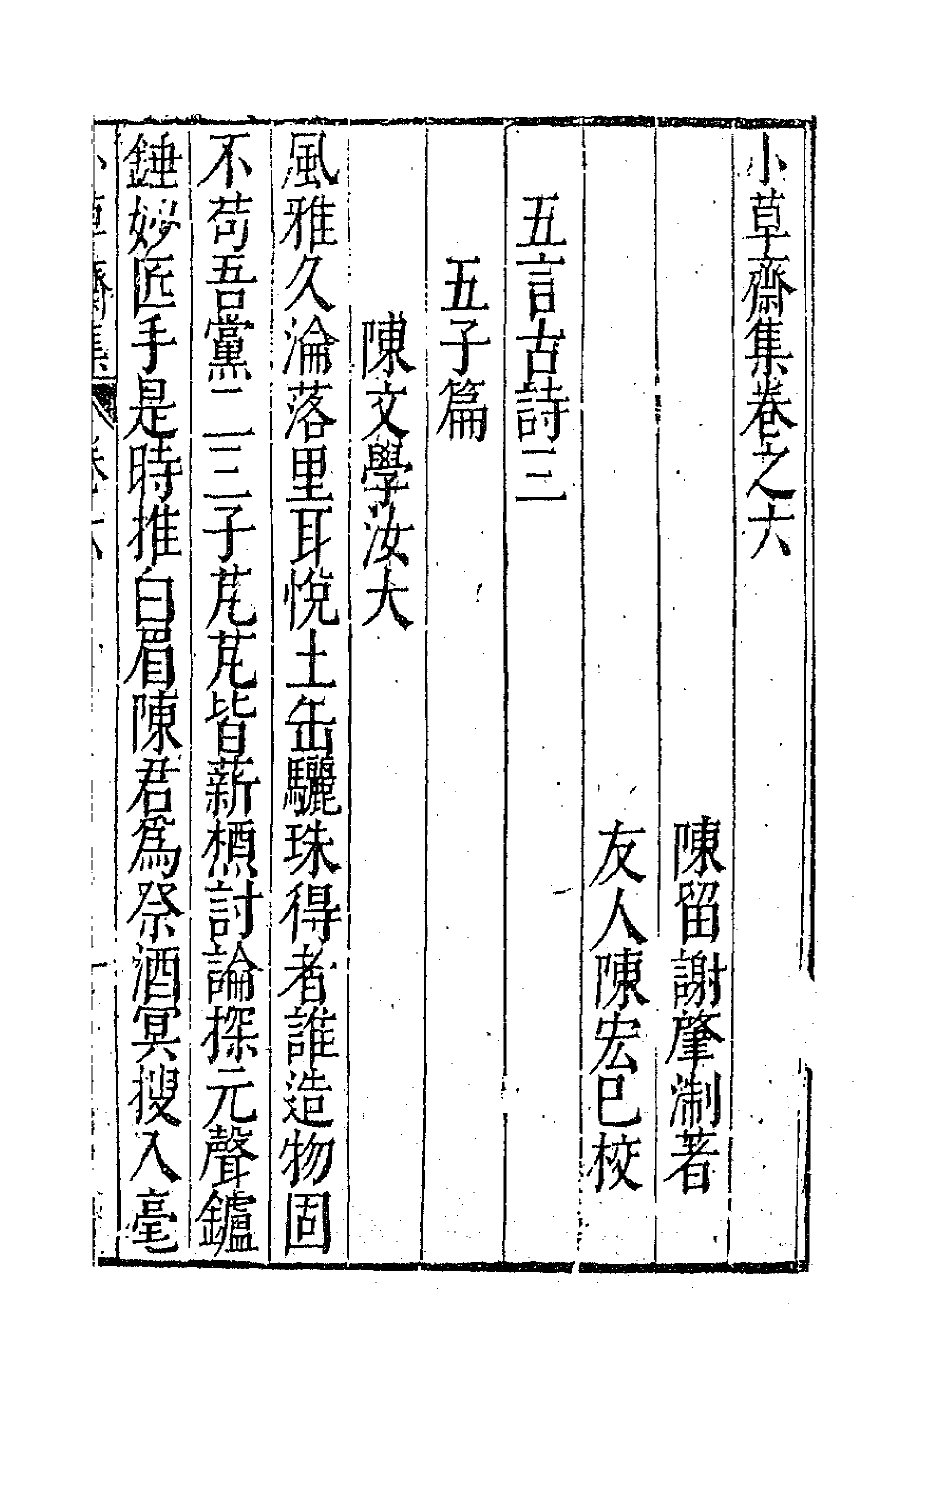 小草齋集卷之六
陳留謝肇淛著
友人陳宏巳校
五言古詩三
五子篇
陳文學汝大
風雅久淪落里耳悅土缶驪珠得者誰造物固
不苟吾黨二三子芃芃皆薪槱討論探元聲鑪
錘妙匠手是時推白眉陳君爲祭酒冥搜入毫
小草齋集 卷六 一